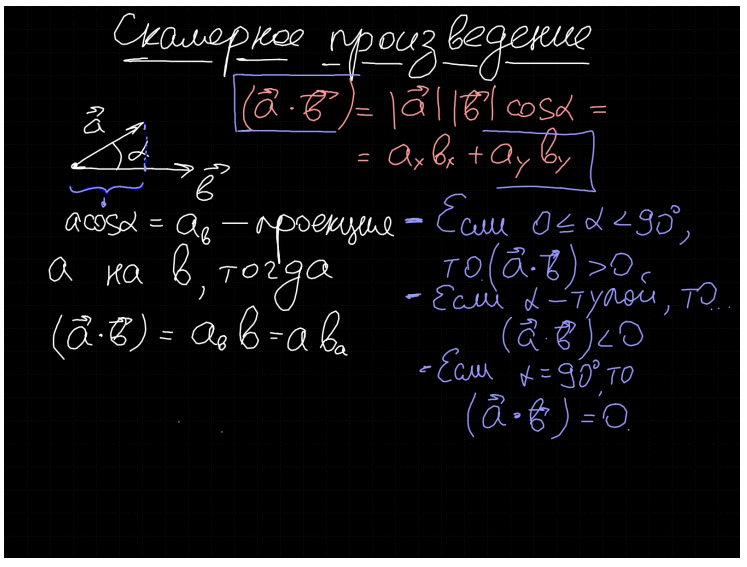 Скалярное произведение
(a⃗ · b⃗) = |a⃗||b⃗| cosα =
= aₓbₓ + a_y b_y
a⃗
α
b⃗
a cosα = a_b – проекция
a на b, тогда
(a⃗ · b⃗) = a_b b = a b_a
- Если 0 ≤ α < 90°,
то (a⃗ · b⃗) > 0
- Если α – тупой, то...
(a⃗ · b⃗) < 0
- Если α = 90°, то
(a⃗ · b⃗) = 0.